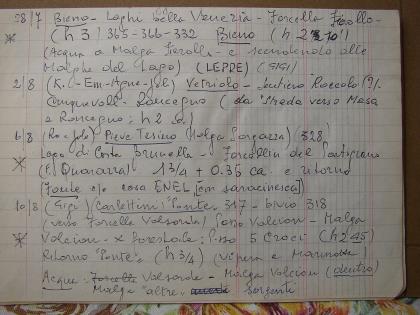 28/7 Bieno - Laghi della Venezia - Forcella Fierollo -
(h 3) 365-366-332 Bieno (h 2 10')
(Acqua a Malga Fierolla - e scendendo alle
Malghe del Lago) (LEPRE) (GIGI)
2/8 (R. - Em - Agne - ) Vetriolo - Sentiero Roccolo (?) -
Cinquevalli - Roncegno (da strada verso Masa
e Roncegno: h 2
6/8 Pieve Tesino Malga Sorgazza) 328
Lago di Costa Brunella - Forcellin del
(F. Quarazza) 1 3/4 + 0.35 ca. e ritorno
fonte c/o casa ENEL [con saracinesca]
10/8 (Gigi) (Carlettini) "Ponte" 317 - bivio 318
(verso Forcella Valsorda) Passo Valcion - Malga
Valcion - x forestale: P.sso 5 Croci (h 2 45)
Ritorno "Ponte" (h 3/4) (Vipera e Marmotte)
Acqua: Valsorda - Malga Valcion (dentro)
Malga "altre" sorgenti